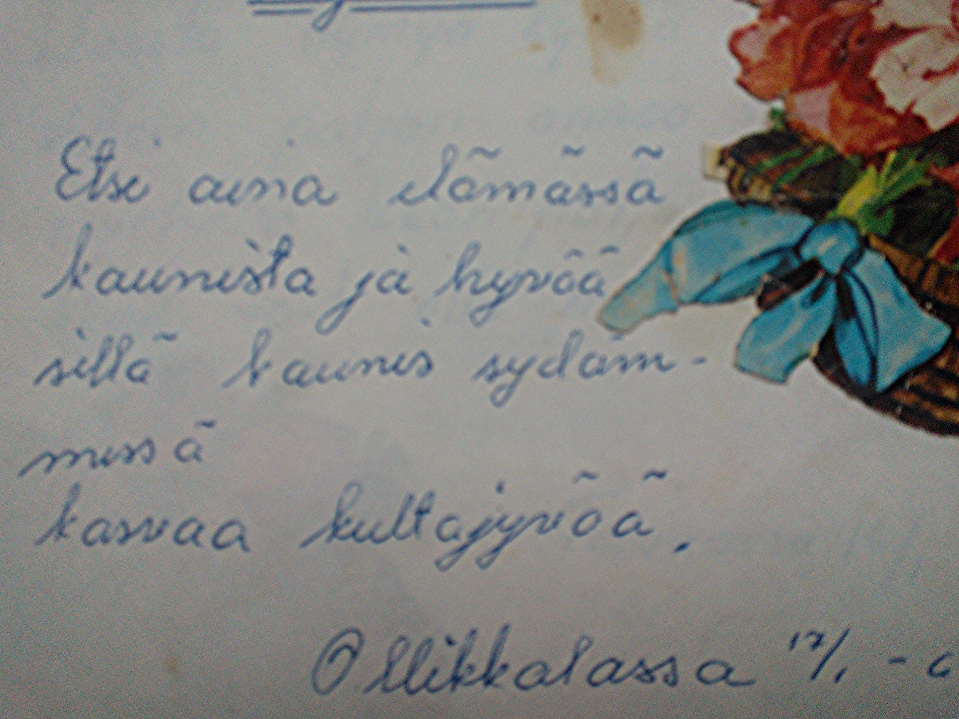 Etsi aina elämässä
kaunista ja hyvää
sillä kaunis sydäm-
missä
kasvaa kultajyvää.
Ollikkalassa 17/1 -